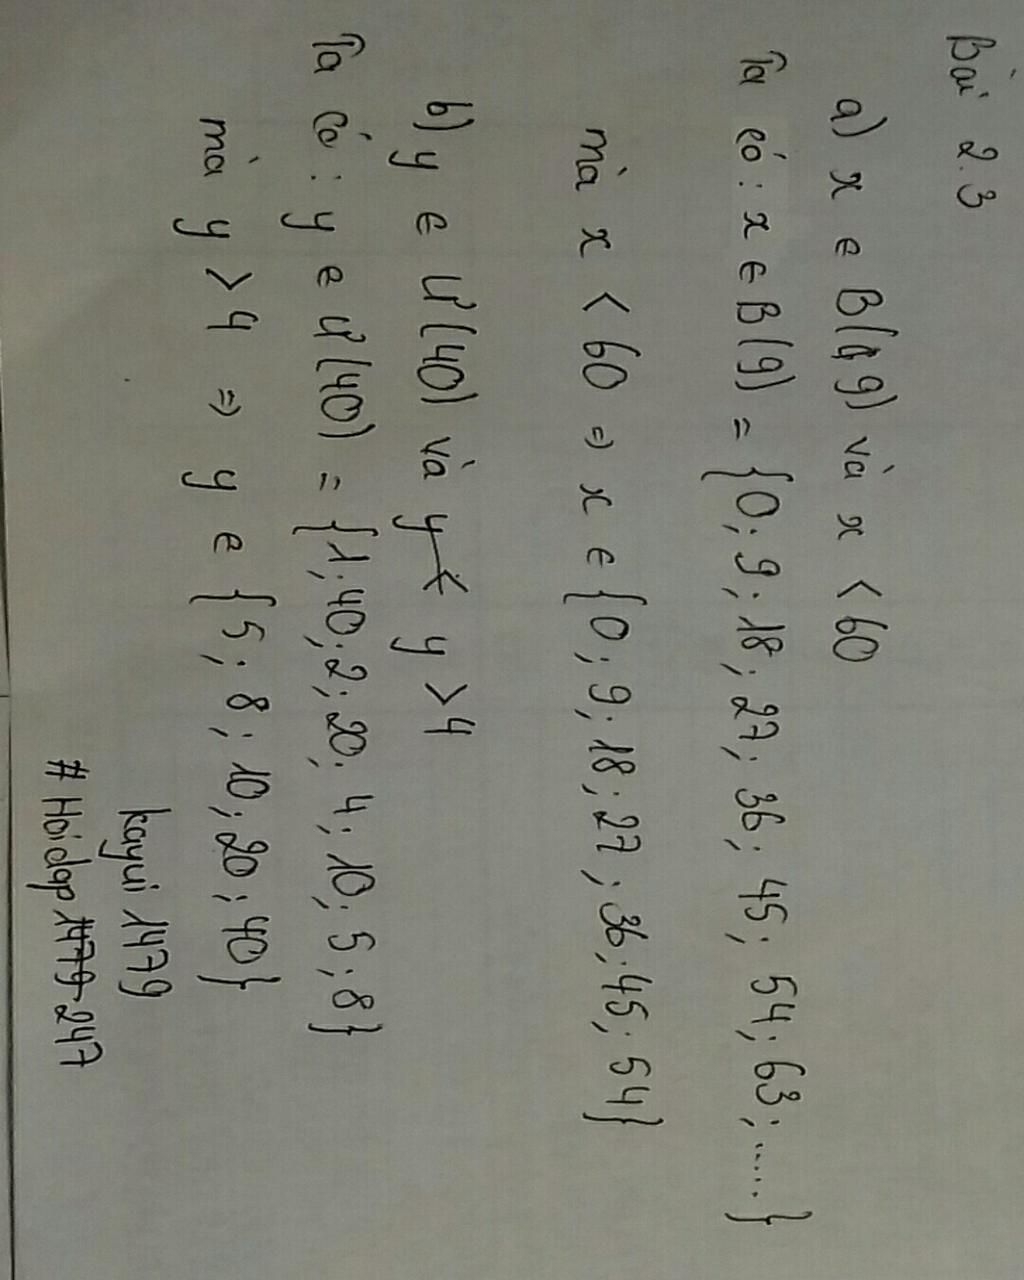 Bài 2.3
a) x ∈ B(9) và x < 60
Ta có: x ∈ B(9) = {0; 9; 18; 27; 36; 45; 54; 63; .....}
mà x < 60 => x ∈ {0; 9; 18; 27; 36; 45; 54}
b) y ∈ Ư(40) và y > 4
Ta có: y ∈ Ư(40) = {1; 40; 2; 20; 4; 10; 5; 8}
mà y > 4 => y ∈ {5; 8; 10; 20; 40}
kayui 1479
# Hoidap 247